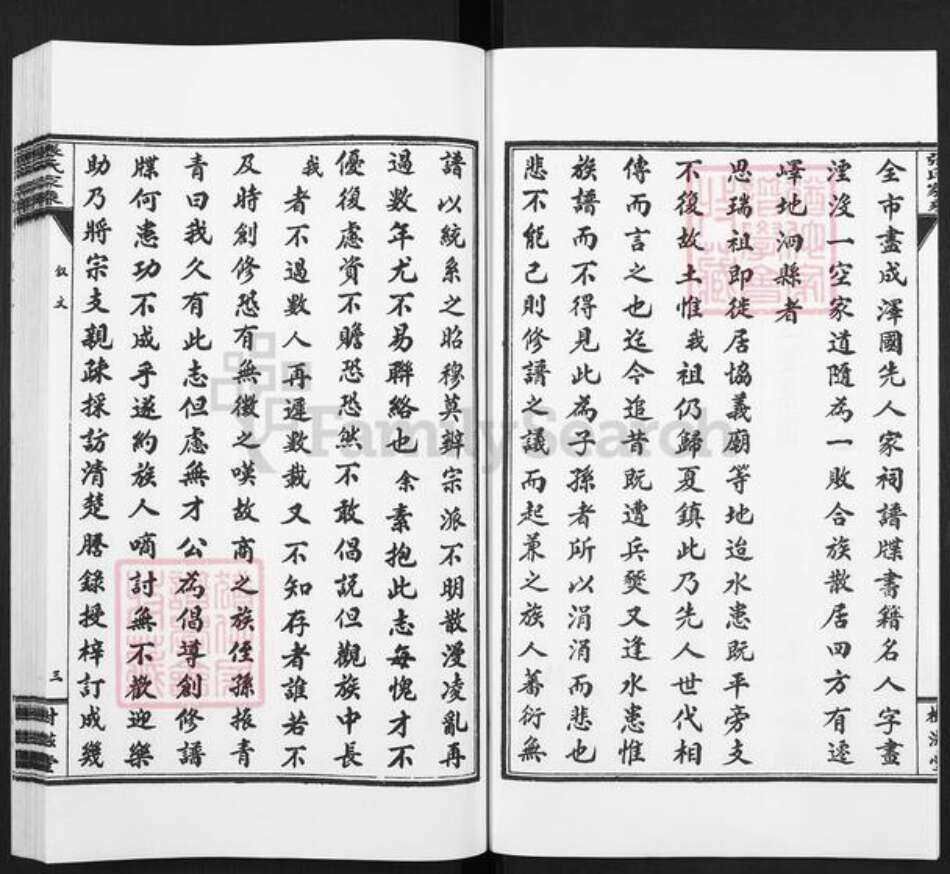 全市盡成澤國先人家祠譜牒書籍名人字畫
湮沒一空家道隨為一敗合族散居四方有逺
嶧地泗縣者
思瑞祖即徙居協義廟等地迨水患既平旁支
不復故土惟我祖仍歸夏鎮此乃先人世代相
傳而言之也迄今追昔既遭兵燹又逢水患惟
族譜而不得見此為子孫者所以涓涓而悲也
悲不能已則修譜之議而起兼之族人蕃衍無
譜以統系之昭穆莫辨宗派不明散漫凌亂再
過數年尤不易聯絡也余素抱此志每愧才不
優復慮資不贍恐恐然不敢倡説但觀族中長
我者不過數人再遲數載又不知存者誰若不
及時創修恐有無徵之嘆故商之族侄孫振青
青曰我久有此志但慮無才公為倡導創修譜
牒何患功不成乎遂約族人嘀討無不歡迎樂
助乃將宗支親疎採訪清楚謄錄授梓訂成幾
叙文
三
FamilySearch